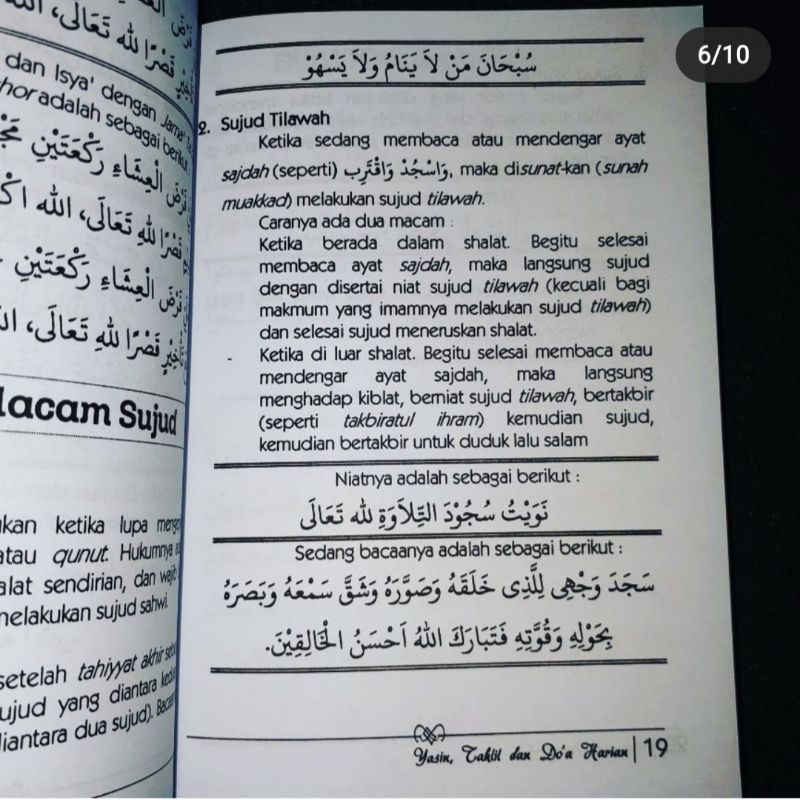 6/10
قَصْرًا لِلّٰهِ تَعَالَى
dan Isya' dengan Jama'
adalah sebagai berikut
فَرْضَ الْعِشَاءِ رَكْعَتَيْنِ
قَصْرًا لِلّٰهِ تَعَالَى، اللّٰه
فَرْضَ الْعِشَاءِ رَكْعَتَيْنِ
قَصْرًا لِلّٰهِ تَعَالَى،
Macam Sujud
kan ketika lupa
atau qunut. Hukumnya
alat sendirian, dan wajib
melakukan sujud sahwi.
setelah tahiyyat akhir
ujud yang diantara
diantara dua sujud).
سُبْحَانَ مَنْ لَا يَنَامُ وَلَا يَسْهُوْ
2. Sujud Tilawah
Ketika sedang membaca atau mendengar ayat
sajdah (seperti) وَاسْجُدْ وَاقْتَرِب, maka disunat-kan (sunah
muakkad) melakukan sujud tilawah.
Caranya ada dua macam :
Ketika berada dalam shalat. Begitu selesai
membaca ayat sajdah, maka langsung sujud
dengan disertai niat sujud tilawah (kecuali bagi
makmum yang imamnya melakukan sujud tilawah)
dan selesai sujud meneruskan shalat.
- Ketika di luar shalat. Begitu selesai membaca atau
mendengar ayat sajdah, maka langsung
menghadap kiblat, berniat sujud tilawah, bertakbir
(seperti takbiratul ihram) kemudian sujud,
kemudian bertakbir untuk duduk lalu salam
Niatnya adalah sebagai berikut :
نَوَيْتُ سُجُوْدَ التِّلَاوَةِ لله تَعَالَى
Sedang bacaanya adalah sebagai berikut :
سَجَدَ وَجْهِى لِلَّذِى خَلَقَهُ وَصَوَّرَهُ وَشَقَّ سَمْعَهُ وَبَصَرَهُ
بِحَوْلِهِ وَقُوَّتِهِ فَتَبَارَكَ اللهُ اَحْسَنُ الْخَالِقِيْنَ.
Yasin, Tahlil dan Do'a Harian | 19